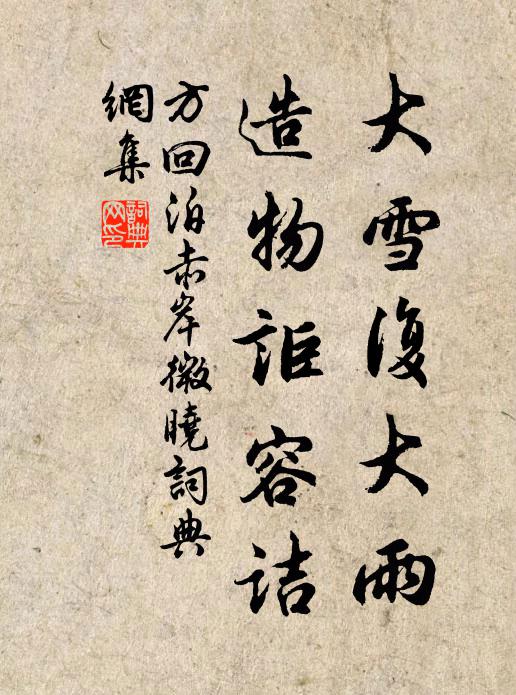 大雪復大雨
造物詎容詰
方回泊赤岸微曉詞典
網集
詞典網印